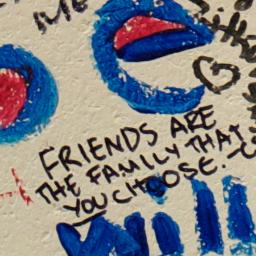 ME
G
FRIENDS ARE
THE FAMILY THAT
YOU CHOOSE.
will